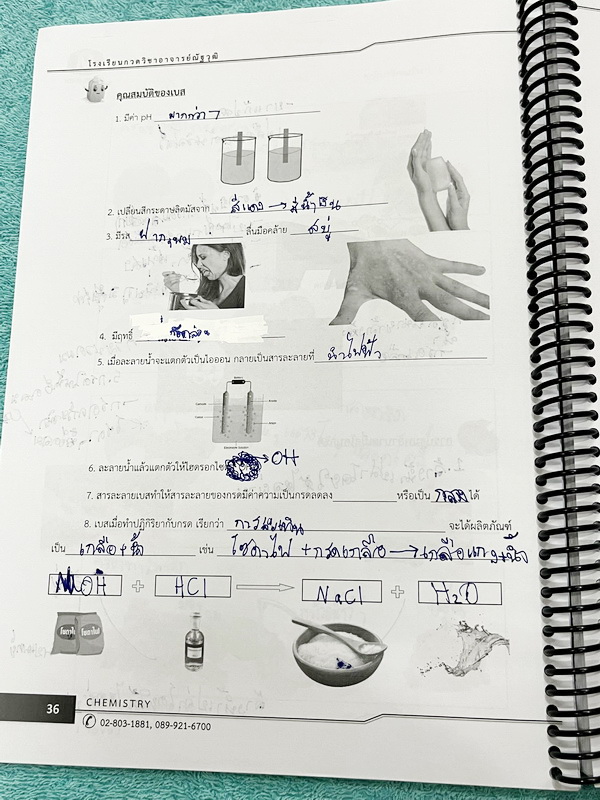 โรงเรียนกวดวิชาอาจารย์ณัฐวุฒิ
คุณสมบัติของเบส
1. มีค่า pH มากกว่า 7
2. เปลี่ยนสีกระดาษลิตมัสจาก สีแดง → สีน้ำเงิน
3. มีรส ฝาดขม ลื่นมือคล้าย สบู่
4. มีฤทธิ์ กัดกร่อน
5. เมื่อละลายน้ำจะแตกตัวเป็นไอออน กลายเป็นสารละลายที่ นำไฟฟ้า
6. ละลายน้ำแล้วแตกตัวให้ไฮดรอกไซ OH
7. สารละลายเบสทำให้สารละลายของกรดมีค่าความเป็นกรดลดลง หรือเป็น กลาง ได้
8. เบสเมื่อทำปฏิกิริยากับกรด เรียกว่า จะได้ผลิตภัณฑ์
เป็น เกลือ + น้ำ เช่น โซดาไฟ + กรดเกลือ → เกลือแกง + น้ำ
NaOH + HCl NaCl + H2O
36 CHEMISTRY
02-803-1881, 089-921-6700